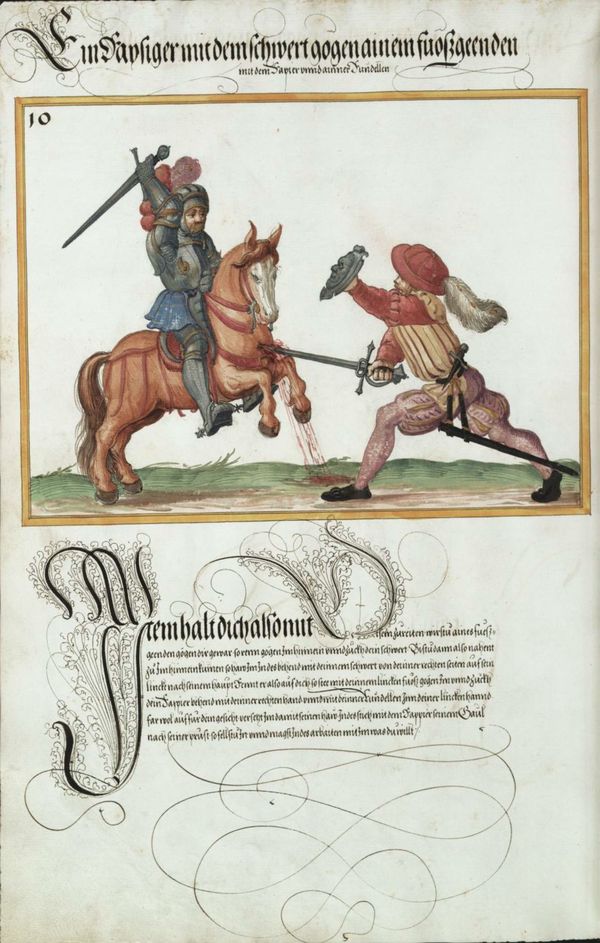 Ein Raysiger mit dem schwert gögen ainem fuosz geenden
mit dem Rapier vnnd ainner Rundellen
10
Item halt dich also mit
disem zureiten wirstu aines fuesz-
geenden gögen dir gewar so renn gögen Im hinnein vnnd zuckh dein schwert Bistu dann also nahent
zu Im hinnein kumen so haw Im Indes behend mit deinnem schwert von deinner rechten seiten auf sein
lincke nach seinem haupt Rennt er also auf dich so stee mit deinnem lincken fuosz gegen Im vnnd zuckh
dein Rapier behend mit deinner rechten hannd vnnd mit deinner Rundellen Inn deiner lincken hannd
far wol auf für dein gesicht versetz Im damit seinen haw Indes stich mit dem Rappier seinem Gaul
nach seiner prust so fellstu In vnnd magst Indes arbaiten mit Im was du willt